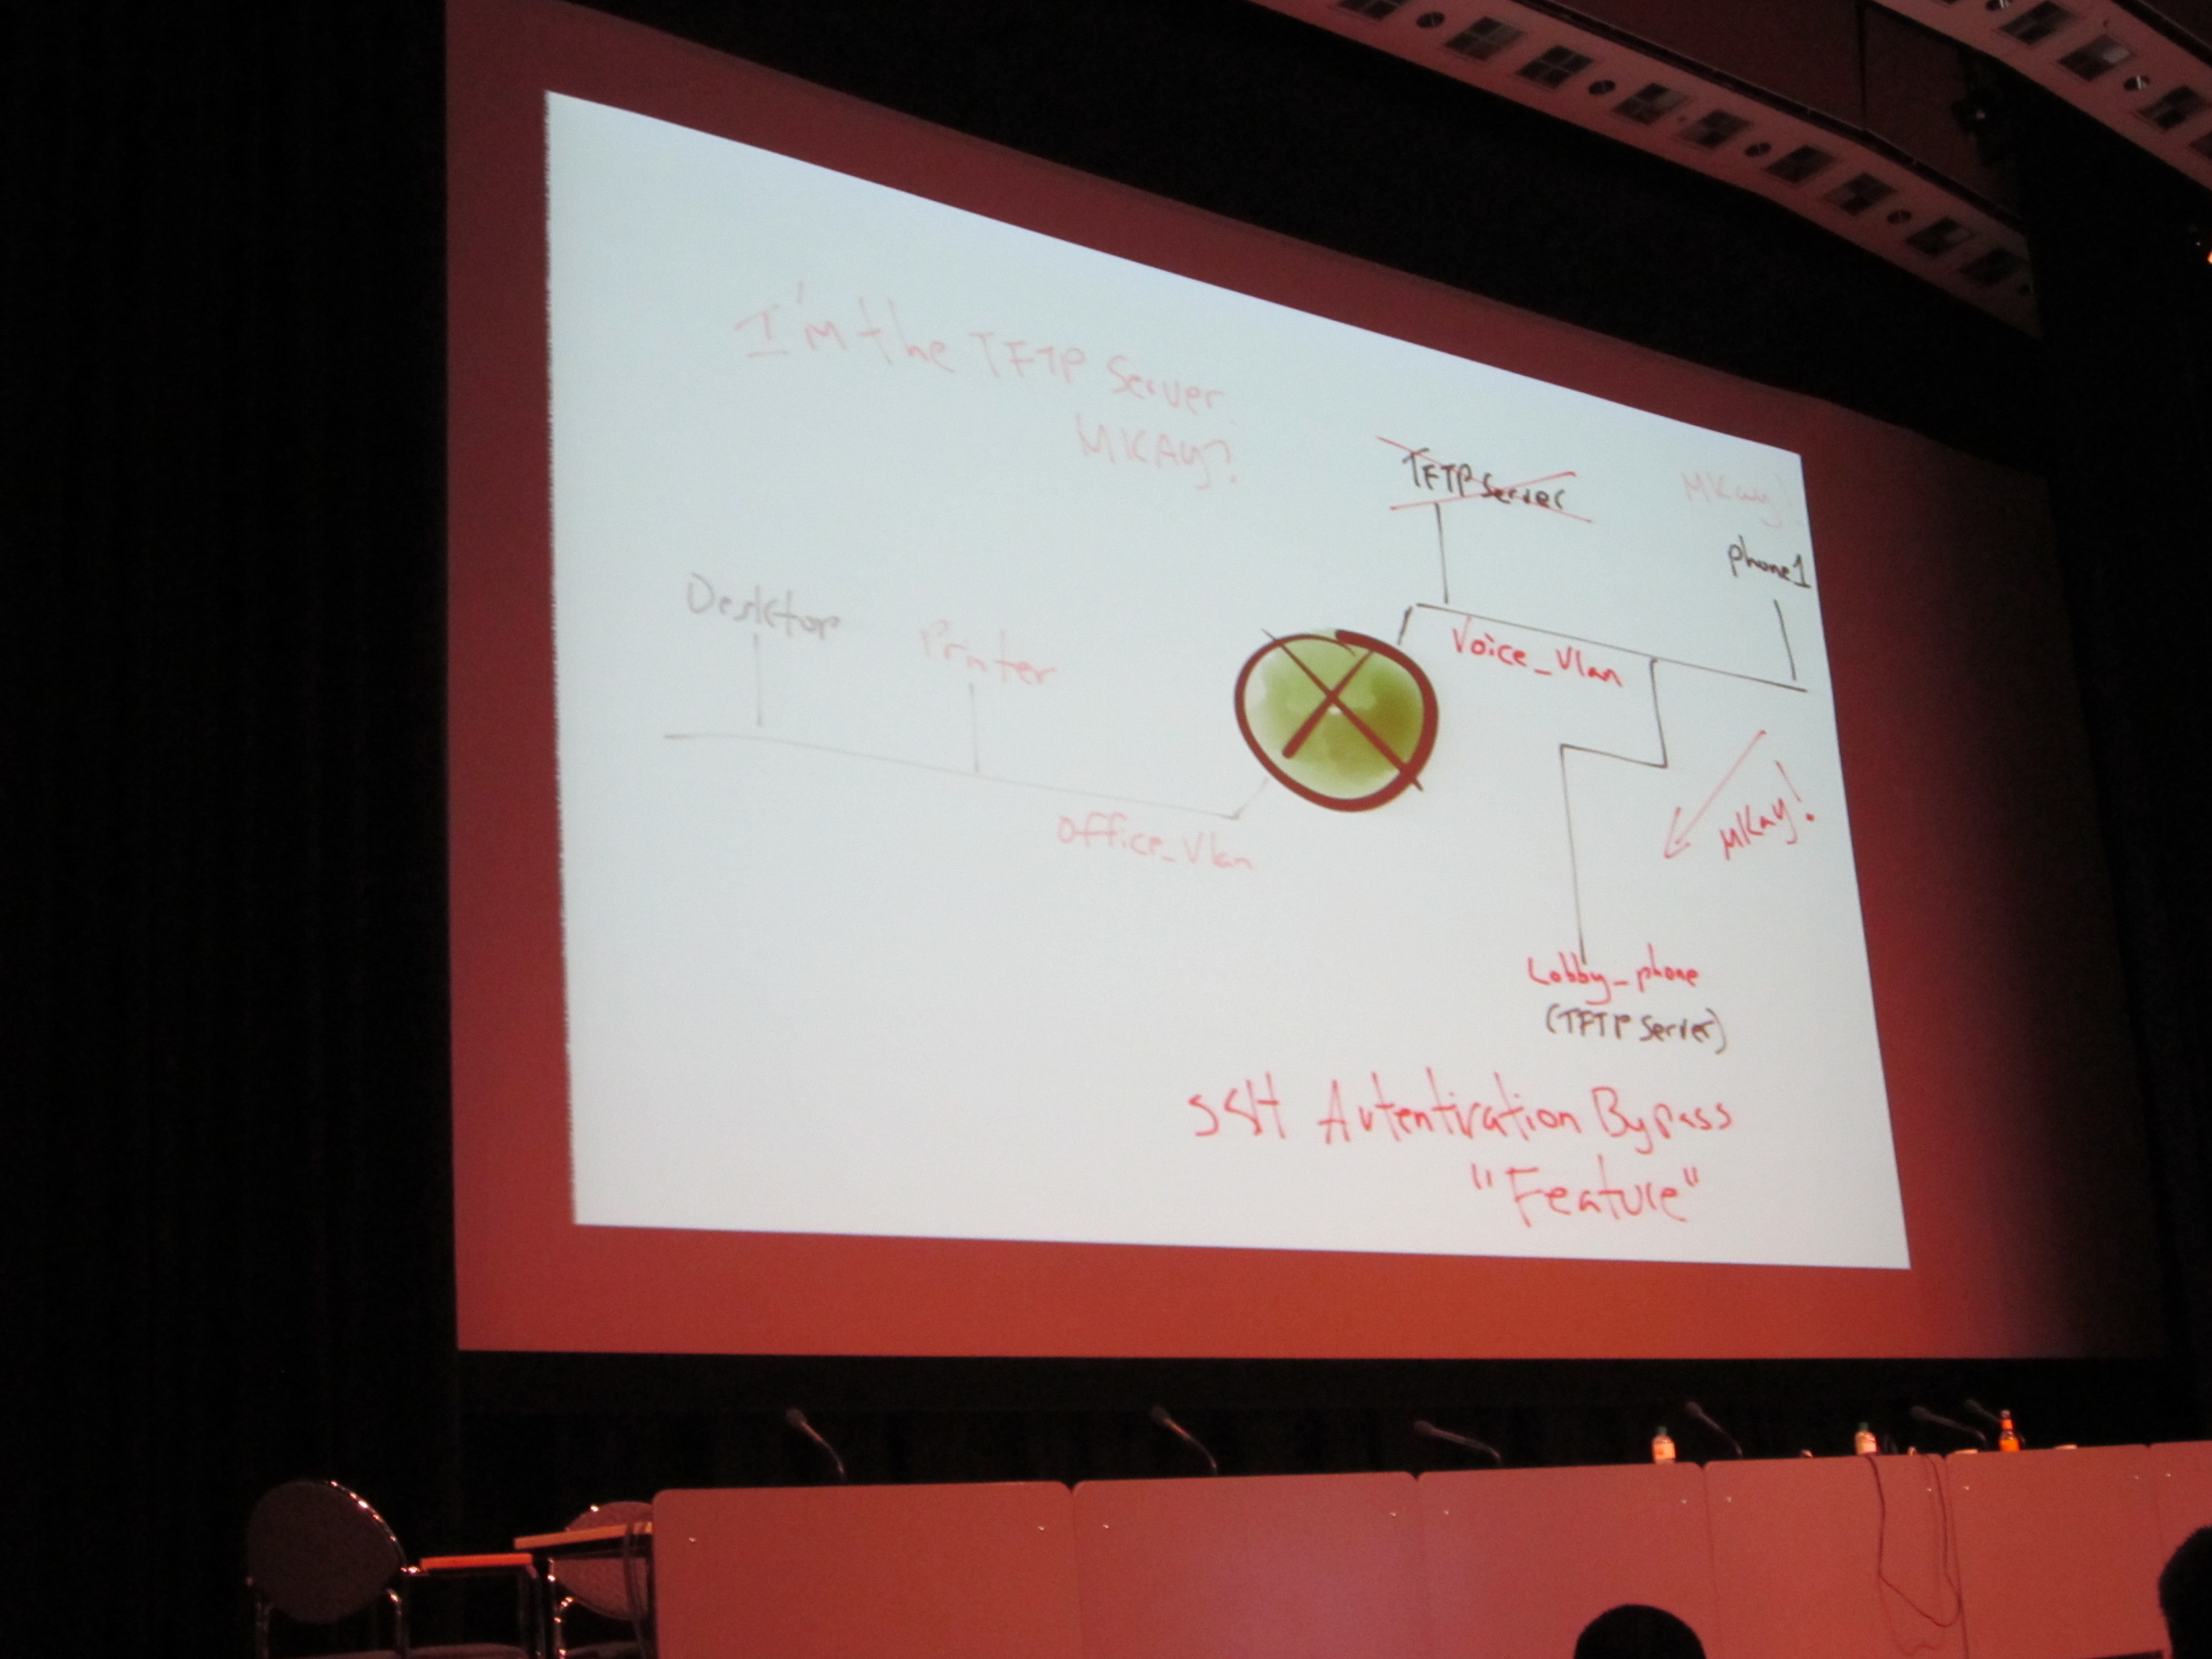 I'm the TFTP Server.
MKAY?
TFTP Server
MKay!
phone1
Desktop
Printer
Voice_Vlan
Office_Vlan
MKay!
Lobby_phone
(TFTP Server)
SSH Autentication Bypass
"Feature"